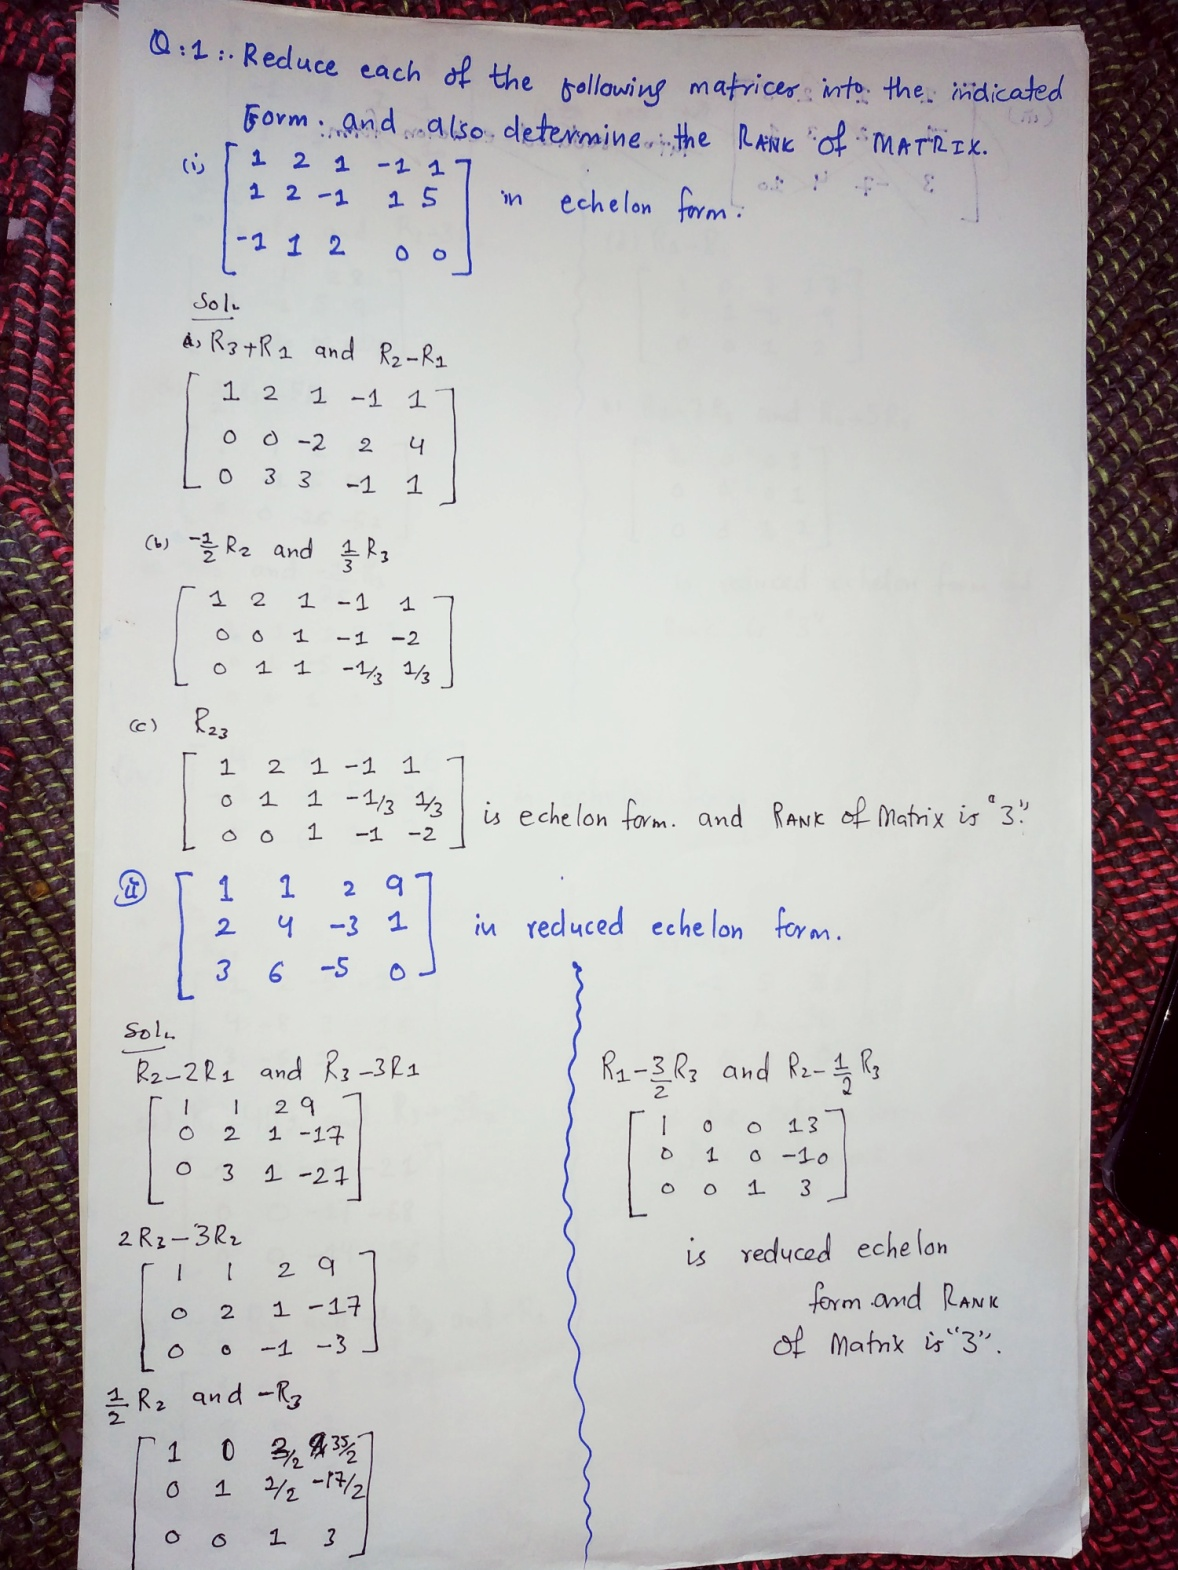 Q:1:. Reduce each of the following matrices into the indicated
Form. and also determine the RANK of MATRIX.
(i) [ 1 2 1 -1 1
1 2 -1 1 5
-1 1 2 0 0 ] in echelon form.
Sol.
a, R3+R1 and R2-R1
[ 1 2 1 -1 1
0 0 -2 2 4
0 3 3 -1 1 ]
(b) -1/2 R2 and 1/3 R3
[ 1 2 1 -1 1
0 0 1 -1 -2
0 1 1 -1/3 1/3 ]
(c) R23
[ 1 2 1 -1 1
0 1 1 -1/3 1/3
0 0 1 -1 -2 ] is echelon form. and RANK of Matrix is "3".
(ii) [ 1 1 2 9
2 4 -3 1
3 6 -5 0 ] in reduced echelon form.
Sol.
R2-2R1 and R3-3R1
[ 1 1 2 9
0 2 1 -17
0 3 1 -27 ]
2R3-3R2
[ 1 1 2 9
0 2 1 -17
0 0 -1 -3 ]
1/2 R2 and -R3
[ 1 0 3/2 35/2
0 1 1/2 -17/2
0 0 1 3 ]
R1-3/2 R3 and R2-1/2 R3
[ 1 0 0 13
0 1 0 -10
0 0 1 3 ]
is reduced echelon
form and RANK
of Matrix is "3".